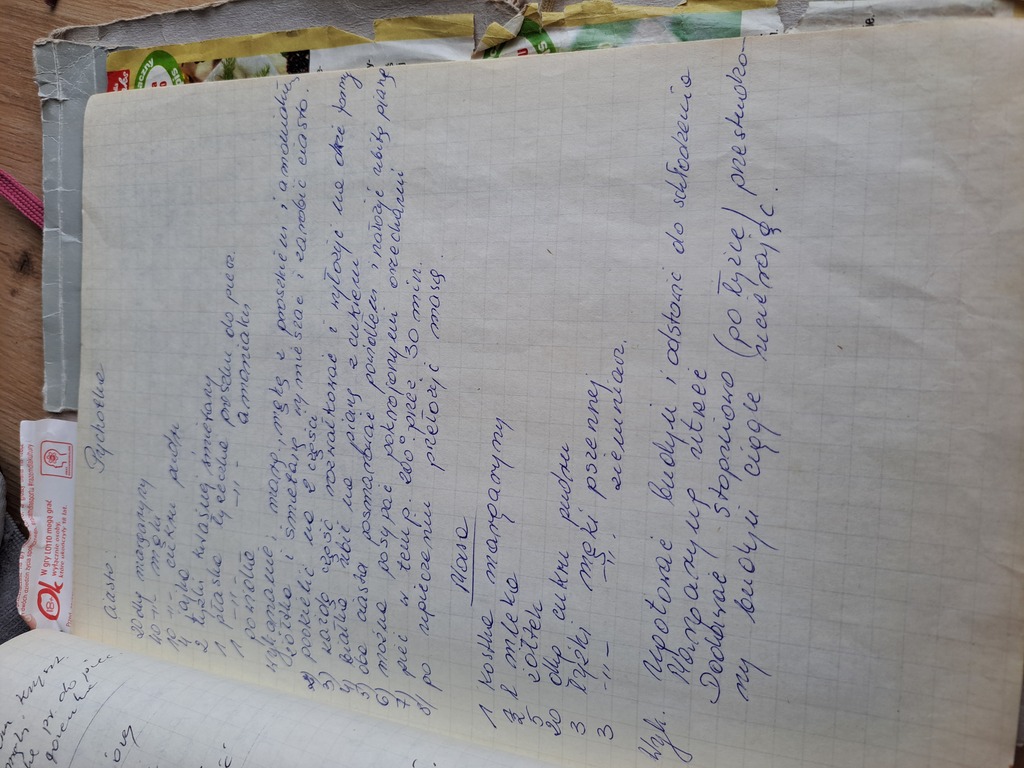 Pychotka
Ciasto
20 dkg margaryny
40 -11- mąki
10 -11- cukru pudru
4 jajka
2 łyżki kwaśnej śmietany
1 płaska łyżeczka proszku do piecz.
1 -11- -11- amoniaku
powidła
wykonanie:
marg, mąkę z proszkiem i amoniakiem
żółtka i śmietanę wymieszać i zarobić ciasto.
2) podzielić na 2 części
3) każdą część rozwałkować i wyłożyć na dwie formy
4) białka ubić na pianę z cukrem
5) oba ciasta posmarować powidłem i nałożyć ubitą pianę
6) można posypać pokrojonymi orzechami
7) piec w temp. 200° przez 30 min.
8) po upieczeniu przełożyć masą.
Masa
1 kostka margaryny
1/2 l mleka
5 żółtek
20 dkg cukru pudru
3 łyżki mąki pszennej
3 -11- -11- ziemniacz.
Wyk. Ugotować budyń i odstawić do schłodzenia
Margarynę utrzeć
Dodawać stopniowo (po łyżce) przestudzo-
ny budyń ciągle ucierając.
18+
OK
W gry LOTTO mogą grać
wyłącznie osoby,
które ukończyły 18 lat.